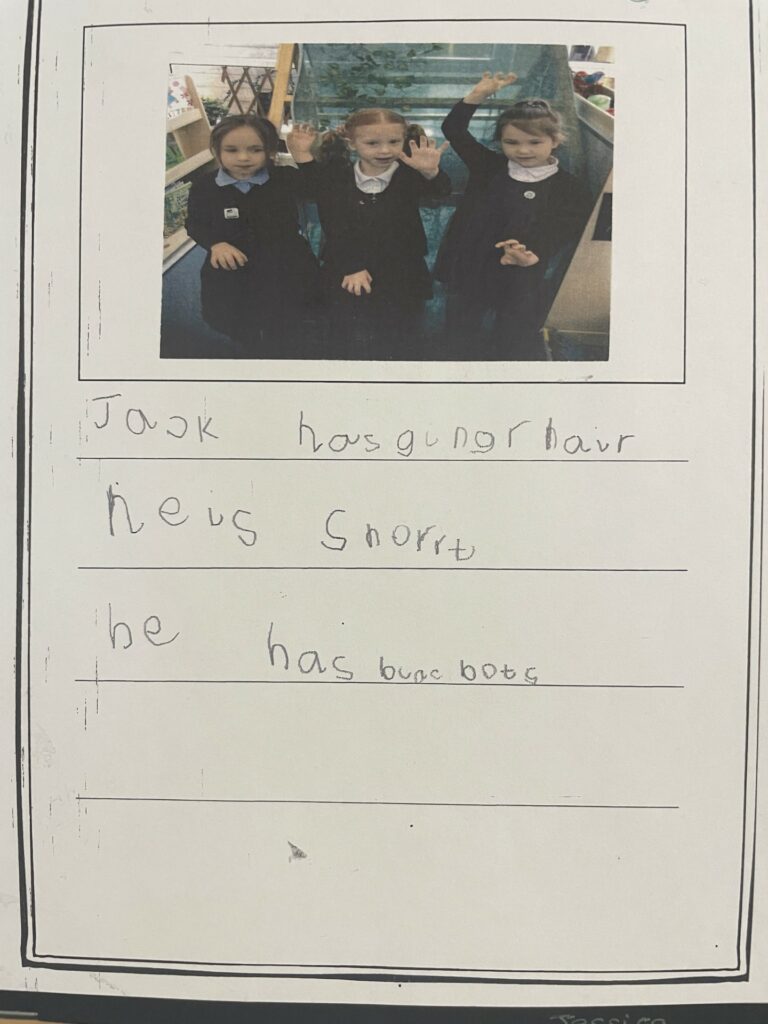 Jack has gungr hair
he is shorrt
he has buac bots
Jessica